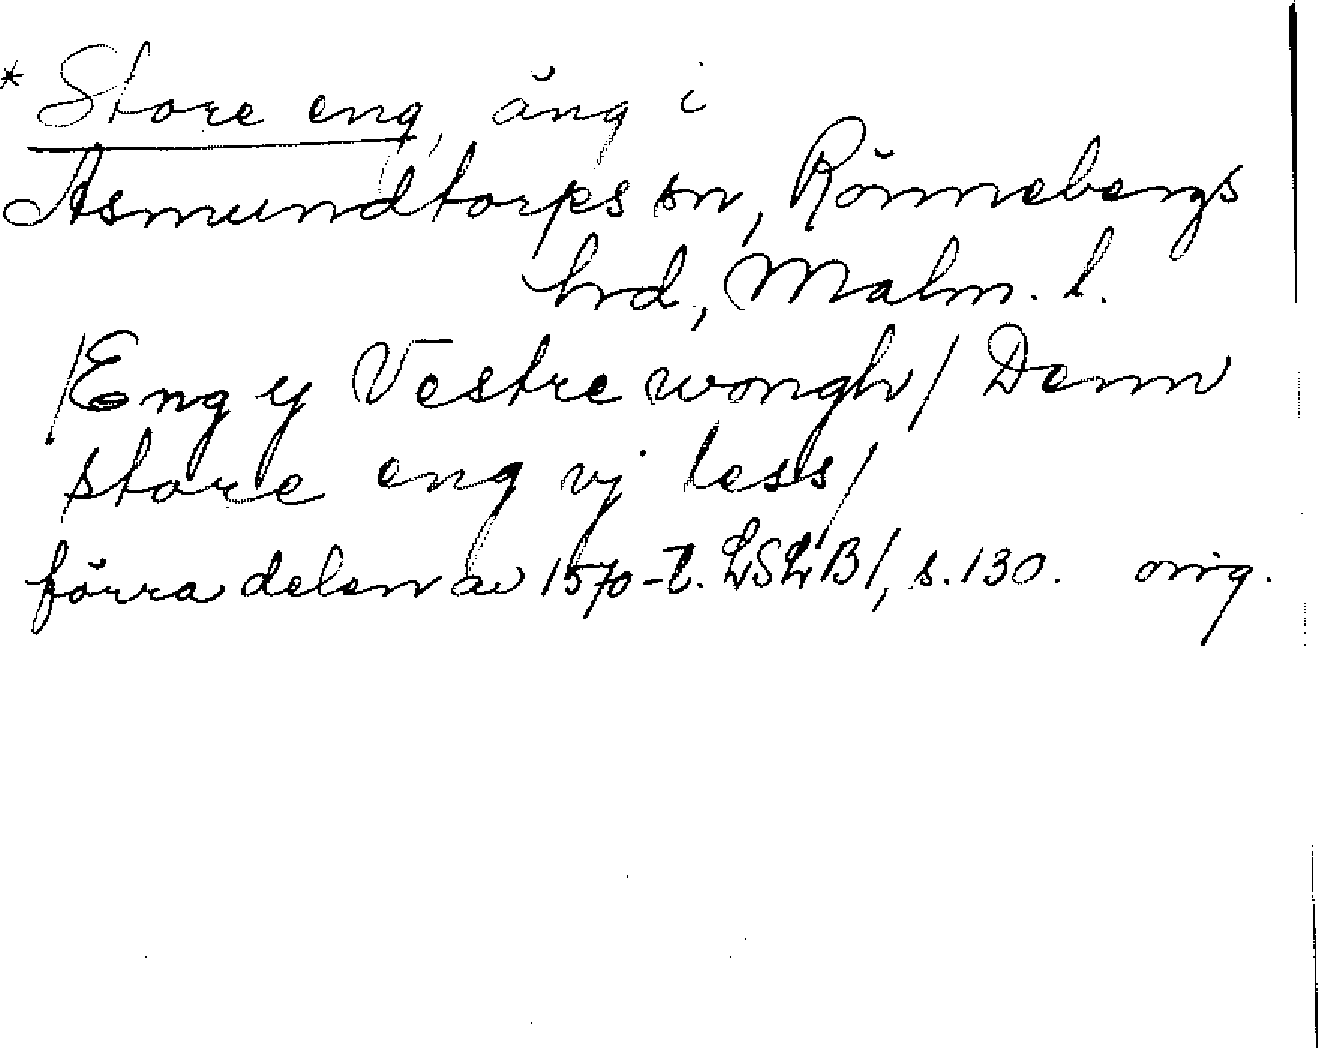 * Store eng, äng i
Asmundtorps sn, Rönnebergs
hrd, Malm. l.
/Eng y Vestre wongh/ Denn
store eng vj less/
förra delen av 1570-t. LSLB/, s. 130. orig.